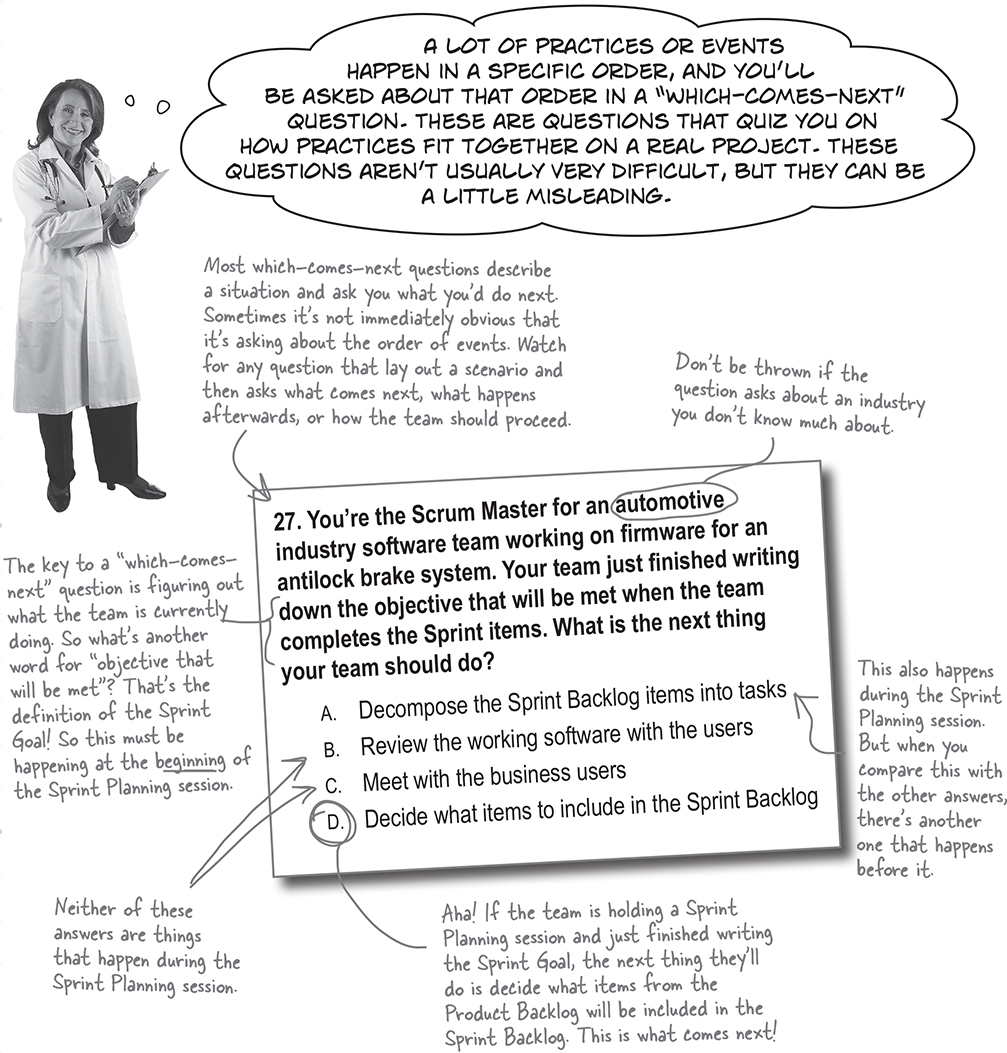 A LOT OF PRACTICES OR EVENTS
HAPPEN IN A SPECIFIC ORDER, AND YOU'LL
BE ASKED ABOUT THAT ORDER IN A "WHICH-COMES-NEXT"
QUESTION. THESE ARE QUESTIONS THAT QUIZ YOU ON
HOW PRACTICES FIT TOGETHER ON A REAL PROJECT. THESE
QUESTIONS AREN'T USUALLY VERY DIFFICULT, BUT THEY CAN BE
A LITTLE MISLEADING.
Most which-comes-next questions describe
a situation and ask you what you'd do next.
Sometimes it's not immediately obvious that
it's asking about the order of events. Watch
for any question that lay out a scenario and
then asks what comes next, what happens
afterwards, or how the team should proceed.
Don't be thrown if the
question asks about an industry
you don't know much about.
27. You're the Scrum Master for an automotive
industry software team working on firmware for an
antilock brake system. Your team just finished writing
down the objective that will be met when the team
completes the Sprint items. What is the next thing
your team should do?
A. Decompose the Sprint Backlog items into tasks
B. Review the working software with the users
C. Meet with the business users
D. Decide what items to include in the Sprint Backlog
The key to a "which-comes-
next" question is figuring out
what the team is currently
doing. So what's another
word for "objective that
will be met"? That's the
definition of the Sprint
Goal! So this must be
happening at the beginning of
the Sprint Planning session.
This also happens
during the Sprint
Planning session.
But when you
compare this with
the other answers,
there's another
one that happens
before it.
Neither of these
answers are things
that happen during the
Sprint Planning session.
Aha! If the team is holding a Sprint
Planning session and just finished writing
the Sprint Goal, the next thing they'll
do is decide what items from the
Product Backlog will be included in the
Sprint Backlog. This is what comes next!